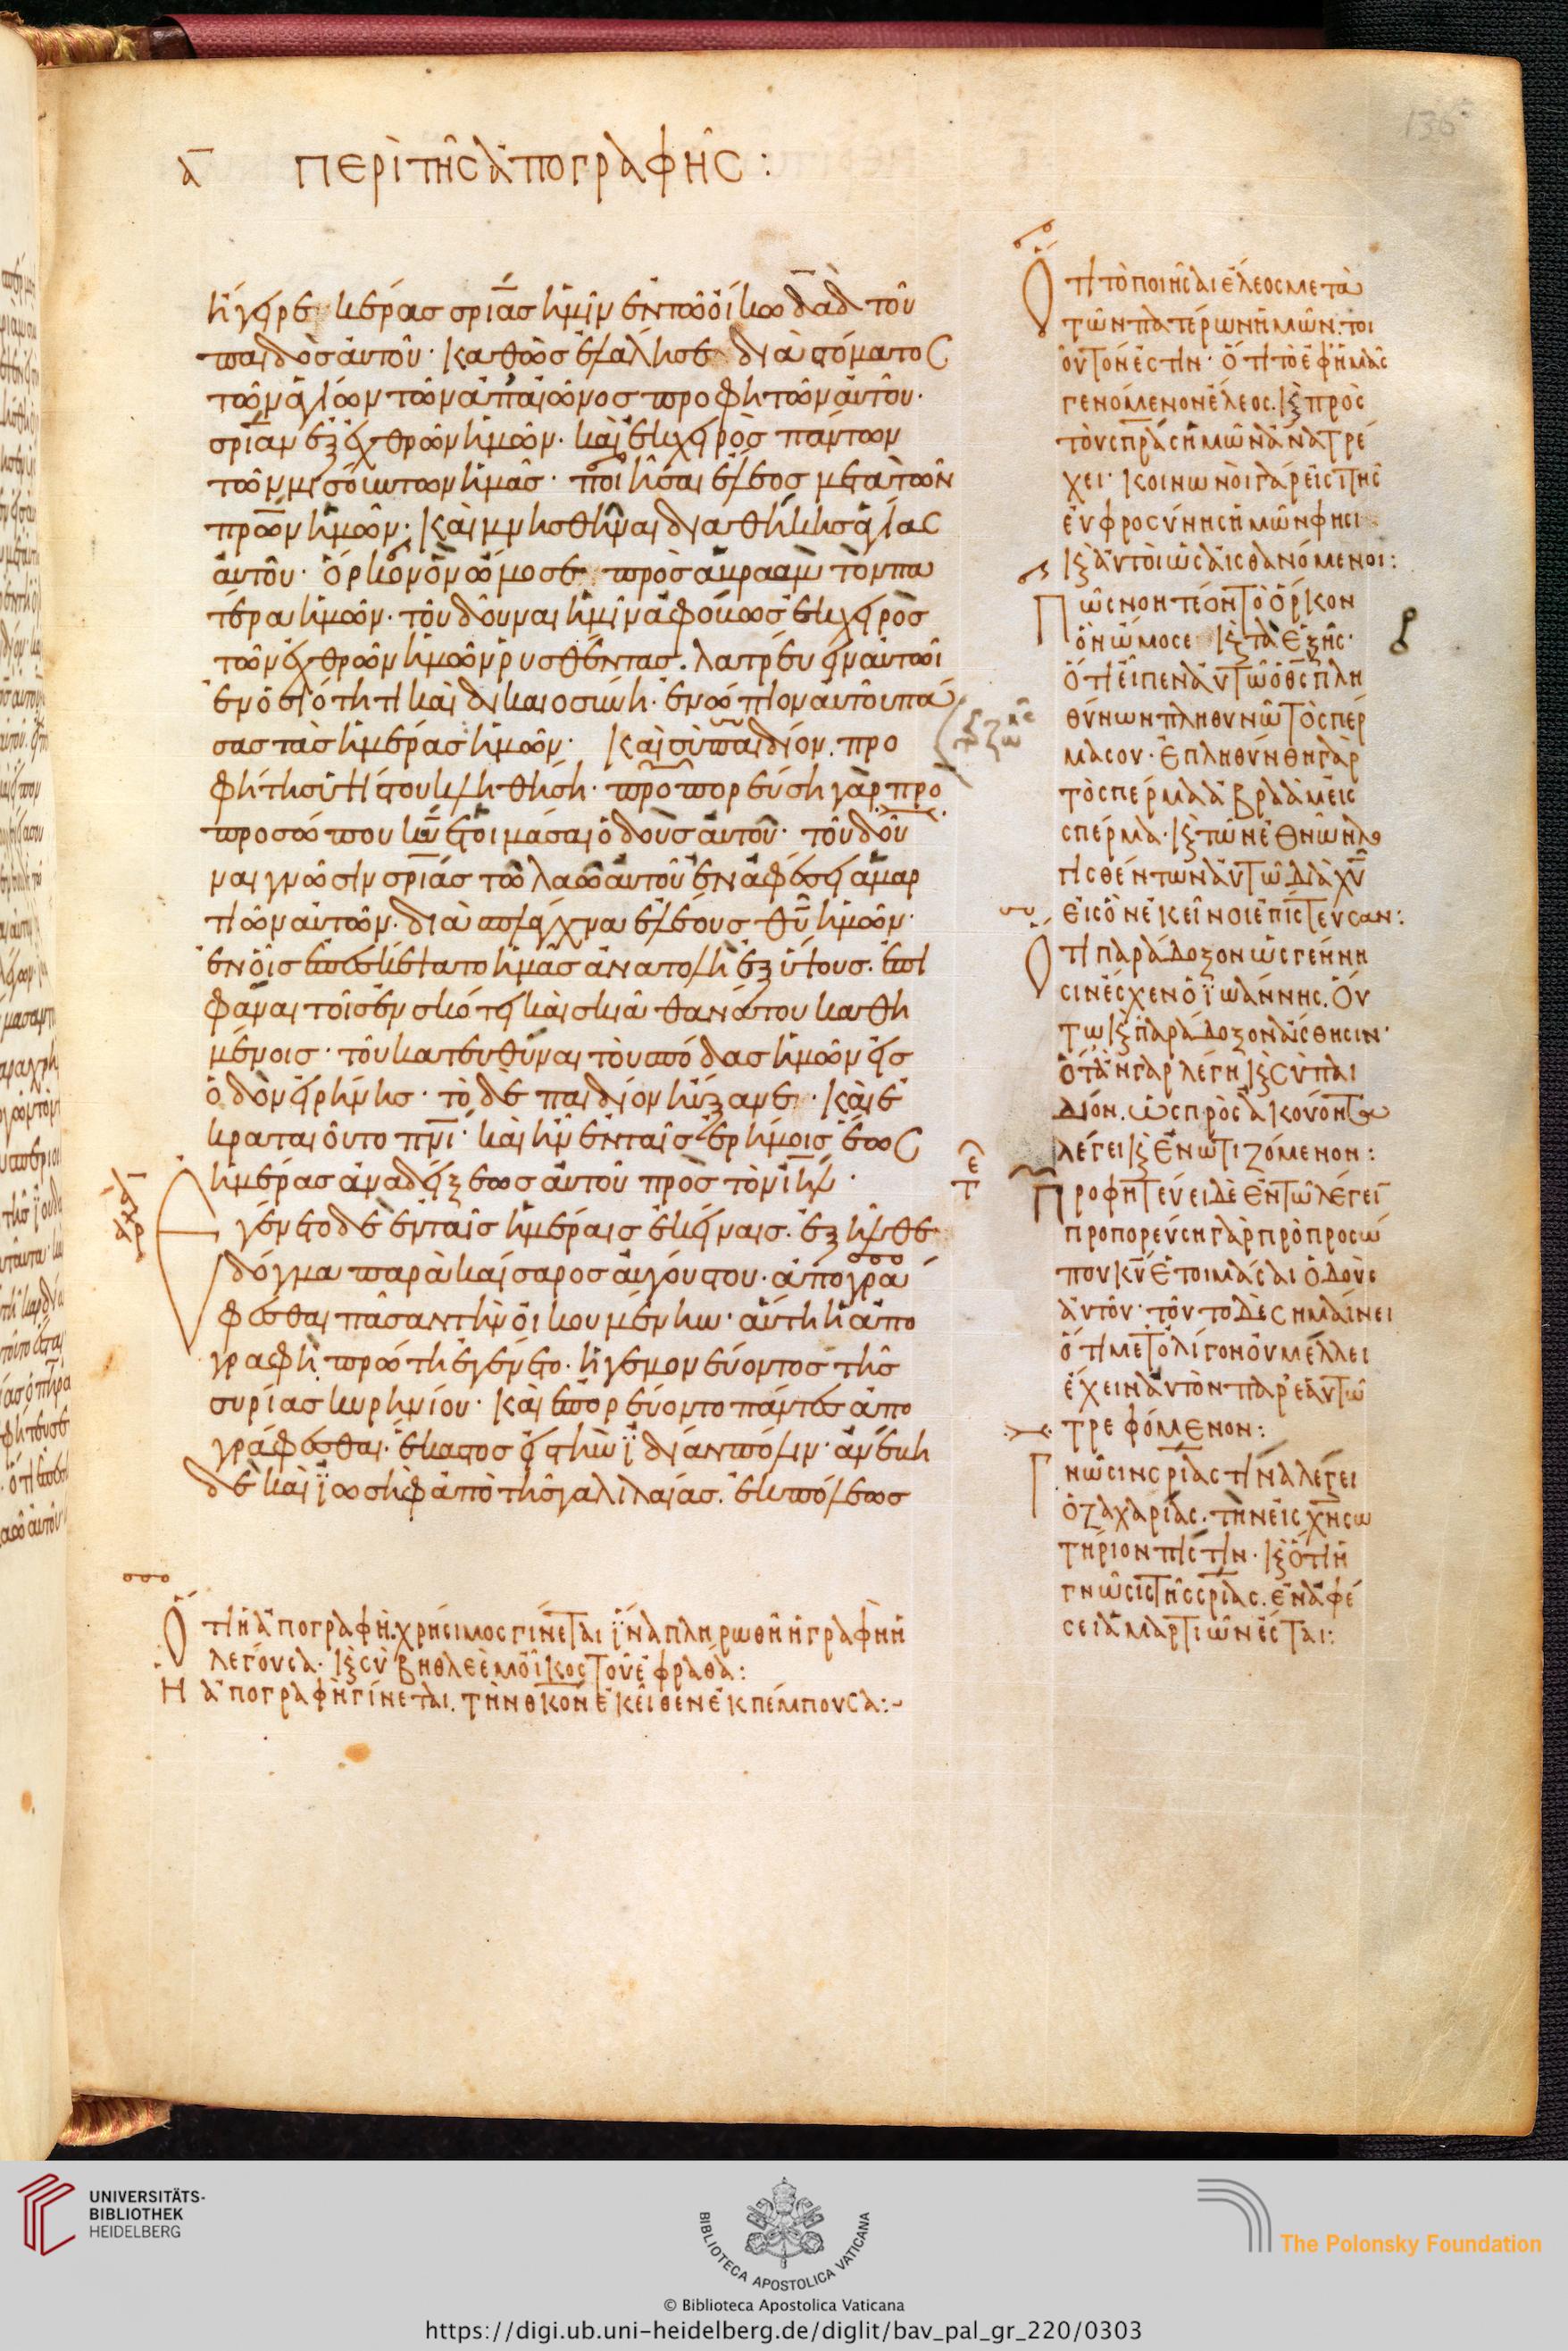 136
α περὶ τῆς ἀπογραφῆς :
ἤγειρε κέρας σρίας ἡμῖν ἐν τῶ οἴκω δαδ τοῦ
παιδὸς αὐτοῦ · καθὼς ἐλάλησε διὰ στόματος
τῶν ἁγίων τῶν ἀπ αἰῶνος προφητῶν αὐτοῦ ·
σρίαν ἐξ ἐχθρῶν ἡμῶν · καὶ ἐκ χειρὸς πάντων
τῶν μισούντων ἡμᾶς · ποιῆσαι ἔλεος μετὰ τῶν
πρων ἡμῶν · καὶ μνησθῆναι διαθήκης ἁγίας
αὐτοῦ · ὅρκον ὃν ὤμοσε πρὸς ἀβραὰμ τὸν πα
τέρα ἡμῶν · τοῦ δοῦναι ἡμῖν ἀφόβως ἐκ χειρὸς
τῶν ἐχθρῶν ἡμῶν ῥυσθέντας · λατρεύειν αὐτῶι
ἐν ὁσιότητι καὶ δικαιοσύνη · ἐνώπιον αὐτοῦ πά
σας τὰς ἡμέρας ἡμῶν · καὶ σὺ παιδίον · προ
φήτης ὑψίστου κληθήση · προπορεύση γὰρ πρὸ
προσώπου κυ ἑτοιμάσαι ὁδοὺς αὐτοῦ · τοῦ δοῦ
ναι γνῶσιν σρίας τῶ λαῶ αὐτοῦ ἐν ἀφέσει ἁμαρ
τιῶν αὐτῶν · διὰ σπλάγχνα ἐλέους θυ ἡμῶν ·
ἐν οἷς ἐπεσκέψατο ἡμᾶς ἀνατολὴ ἐξ ὕψους · ἐπι
φᾶναι τοῖς ἐν σκότει καὶ σκιᾶ θανάτου καθη
μένοις · τοῦ κατευθῦναι τοὺς πόδας ἡμῶν εἰς
ὁδὸν εἰρήνης · τὸ δὲ παιδίον ηὔξανε · καὶ ἐ
κραταιοῦτο πνι · καὶ ἦν ἐν ταῖς ἐρήμοις ἕως
ἡμέρας ἀναδείξεως αὐτοῦ πρὸς τὸν ιηλ ·
Ἐγένετο δὲ ἐν ταῖς ἡμέραις ἐκείναις · ἐξῆλθε
δόγμα παρὰ καίσαρος αὐγούστου · ἀπογρά
φεσθαι πᾶσαν τὴν οἰκουμένην · αὕτη ἡ ἀπο
γραφὴ πρώτη ἐγένετο · ἡγεμονεύοντος τῆς
συρίας κυρηνίου · καὶ ἐπορεύοντο πάντες ἀπο
γράφεσθαι · ἕκαστος εἰς τὴν ἰδίαν πόλιν · ἀνέβη
δὲ καὶ ἰωσὴφ ἀπὸ τῆς γαλιλαίας · ἐκ πόλεως
Ὅτι ἡ ἀπογραφὴ χρήσιμος γίνεται ἵνα πληρωθῆ ἡ γραφὴ ἡ
λέγουσα · κ σὺ βηθλεὲμ οἶκος τοῦ ἐφραθά :
Ἡ ἀπογραφὴ γίνεται · τὴν θκον ἐκεῖθεν ἐκπέμπουσα :-
Ὅτι τὸ ποιῆσαι ἔλεος μετὰ
τῶν πατέρων ἡμῶν · τοι
οῦτον ἐστιν · ὅτι τὸ ἐφ ἡμᾶς
γενόμενον ἔλεος · κ πρὸς
τοὺς πρας ἡμῶν ἀνατρέ
χει · κοινωνοὶ γάρ εἰσι τῆς
εὐφροσύνης ἡμῶν φησι
κ αὐτοὶ ὡς αἰσθανόμενοι :
Πῶς νοητέον τὸ ὅρκον
ὃν ὤμοσε κ τὰ ἑξῆς ·
ὅτι εἶπεν αὐτῶ ὁ θς πλη
θύνων πληθυνῶ τὸ σπέρ
μα σου · ἐπληθύνθη γὰρ
τὸ σπέρμα ἀβραὰμ εἰς
σπέρμα · κ τῶν ἐθνῶν
πισθέντων αὐτῶ διὰ χυ
εἰς ὃν ἐκεῖνοι ἐπίστευσαν :
Ὅτι παράδοξον ὡς γέννη
σιν ἔσχεν ὁ ἰωάννης · οὕ
τω κ παράδοξον αἴσθησιν ·
ὅταν γὰρ λέγη κ σὺ παι
δίον · ὡς πρὸς ἀκούοντα
λέγει κ ἐνωτιζόμενον :
Προφητεύει δὲ ἐν τῶ λέγει
προπορεύση γὰρ πρὸ προσώ
που κυ ἑτοιμάσαι ὁδοὺς
αὐτοῦ · τοῦτο δὲ σημαίνει
ὅτι μετ ὀλίγον οὐ μέλλει
ἔχειν αὐτὸν παρ ἑαυτῶ
τρεφόμενον :
Γνῶσιν σρίας τίνα λέγει
ὁ ζαχαρίας · τὴν εἰς χν σω
τήριον πίστιν · κ ὅτι ἡ
γνῶσις τῆς σρίας · ἐν ἀφέ
σει ἁμαρτιῶν ἔσται :
UNIVERSITÄTS-
BIBLIOTHEK
HEIDELBERG
BIBLIOTECA APOSTOLICA VATICANA
The Polonsky Foundation
© Biblioteca Apostolica Vaticana
https://digi.ub.uni-heidelberg.de/diglit/bav_pal_gr_220/0303